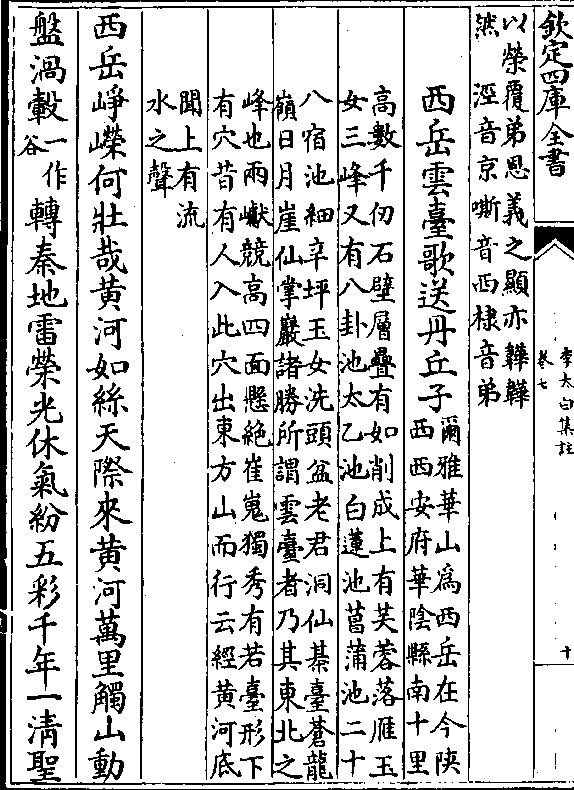 欽定四庫全書
李太白集註
卷七
十
以榮覆弟恩義之顯亦韡韡
然 涇音京嘶音西棣音弟
西岳雲臺歌送丹丘子
爾雅華山爲西岳在今陜
西西安府華陰縣南十里
高數千仞石壁層疊有如削成上有芙蓉落雁玉
女三峰又有八卦池太乙池白蓮池菖蒲池二十
八宿池細辛坪玉女洗頭盆老君洞仙棊臺蒼龍
嶺日月崖仙掌巖諸勝所謂雲臺者乃其東北之
峰也兩巘競高四面懸絶崔嵬獨秀有若臺形下
有穴昔有人入此穴出東方山而行云經黄河底
聞上有流
水之聲
西岳崢嶸何壯哉黄河如絲天際來黄河萬里觸山動
盤渦轂一作谷轉秦地雷榮光休氣紛五彩千年一清聖